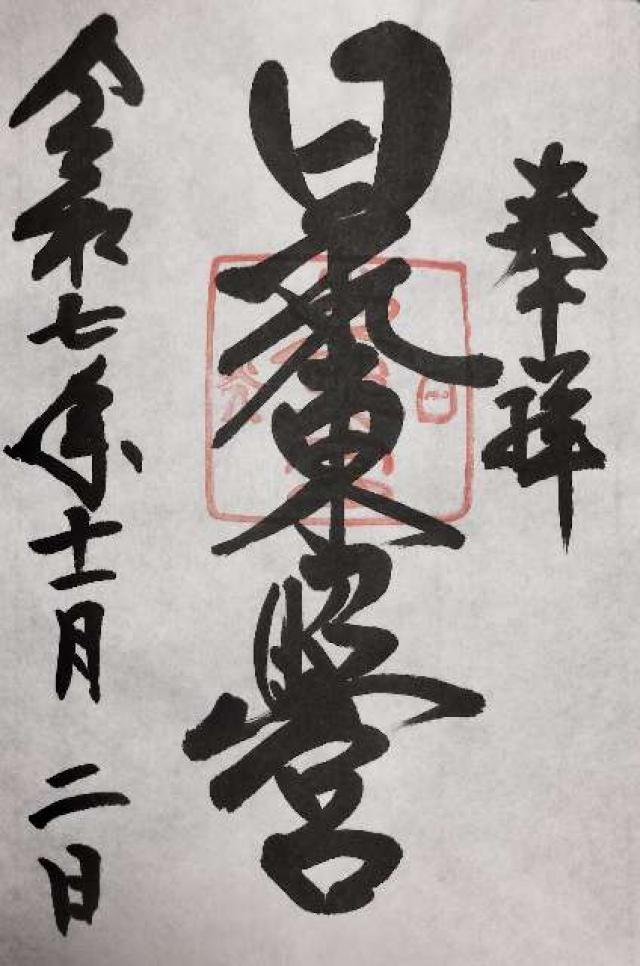 奉拝
日光東照宮
令和七年十一月二日